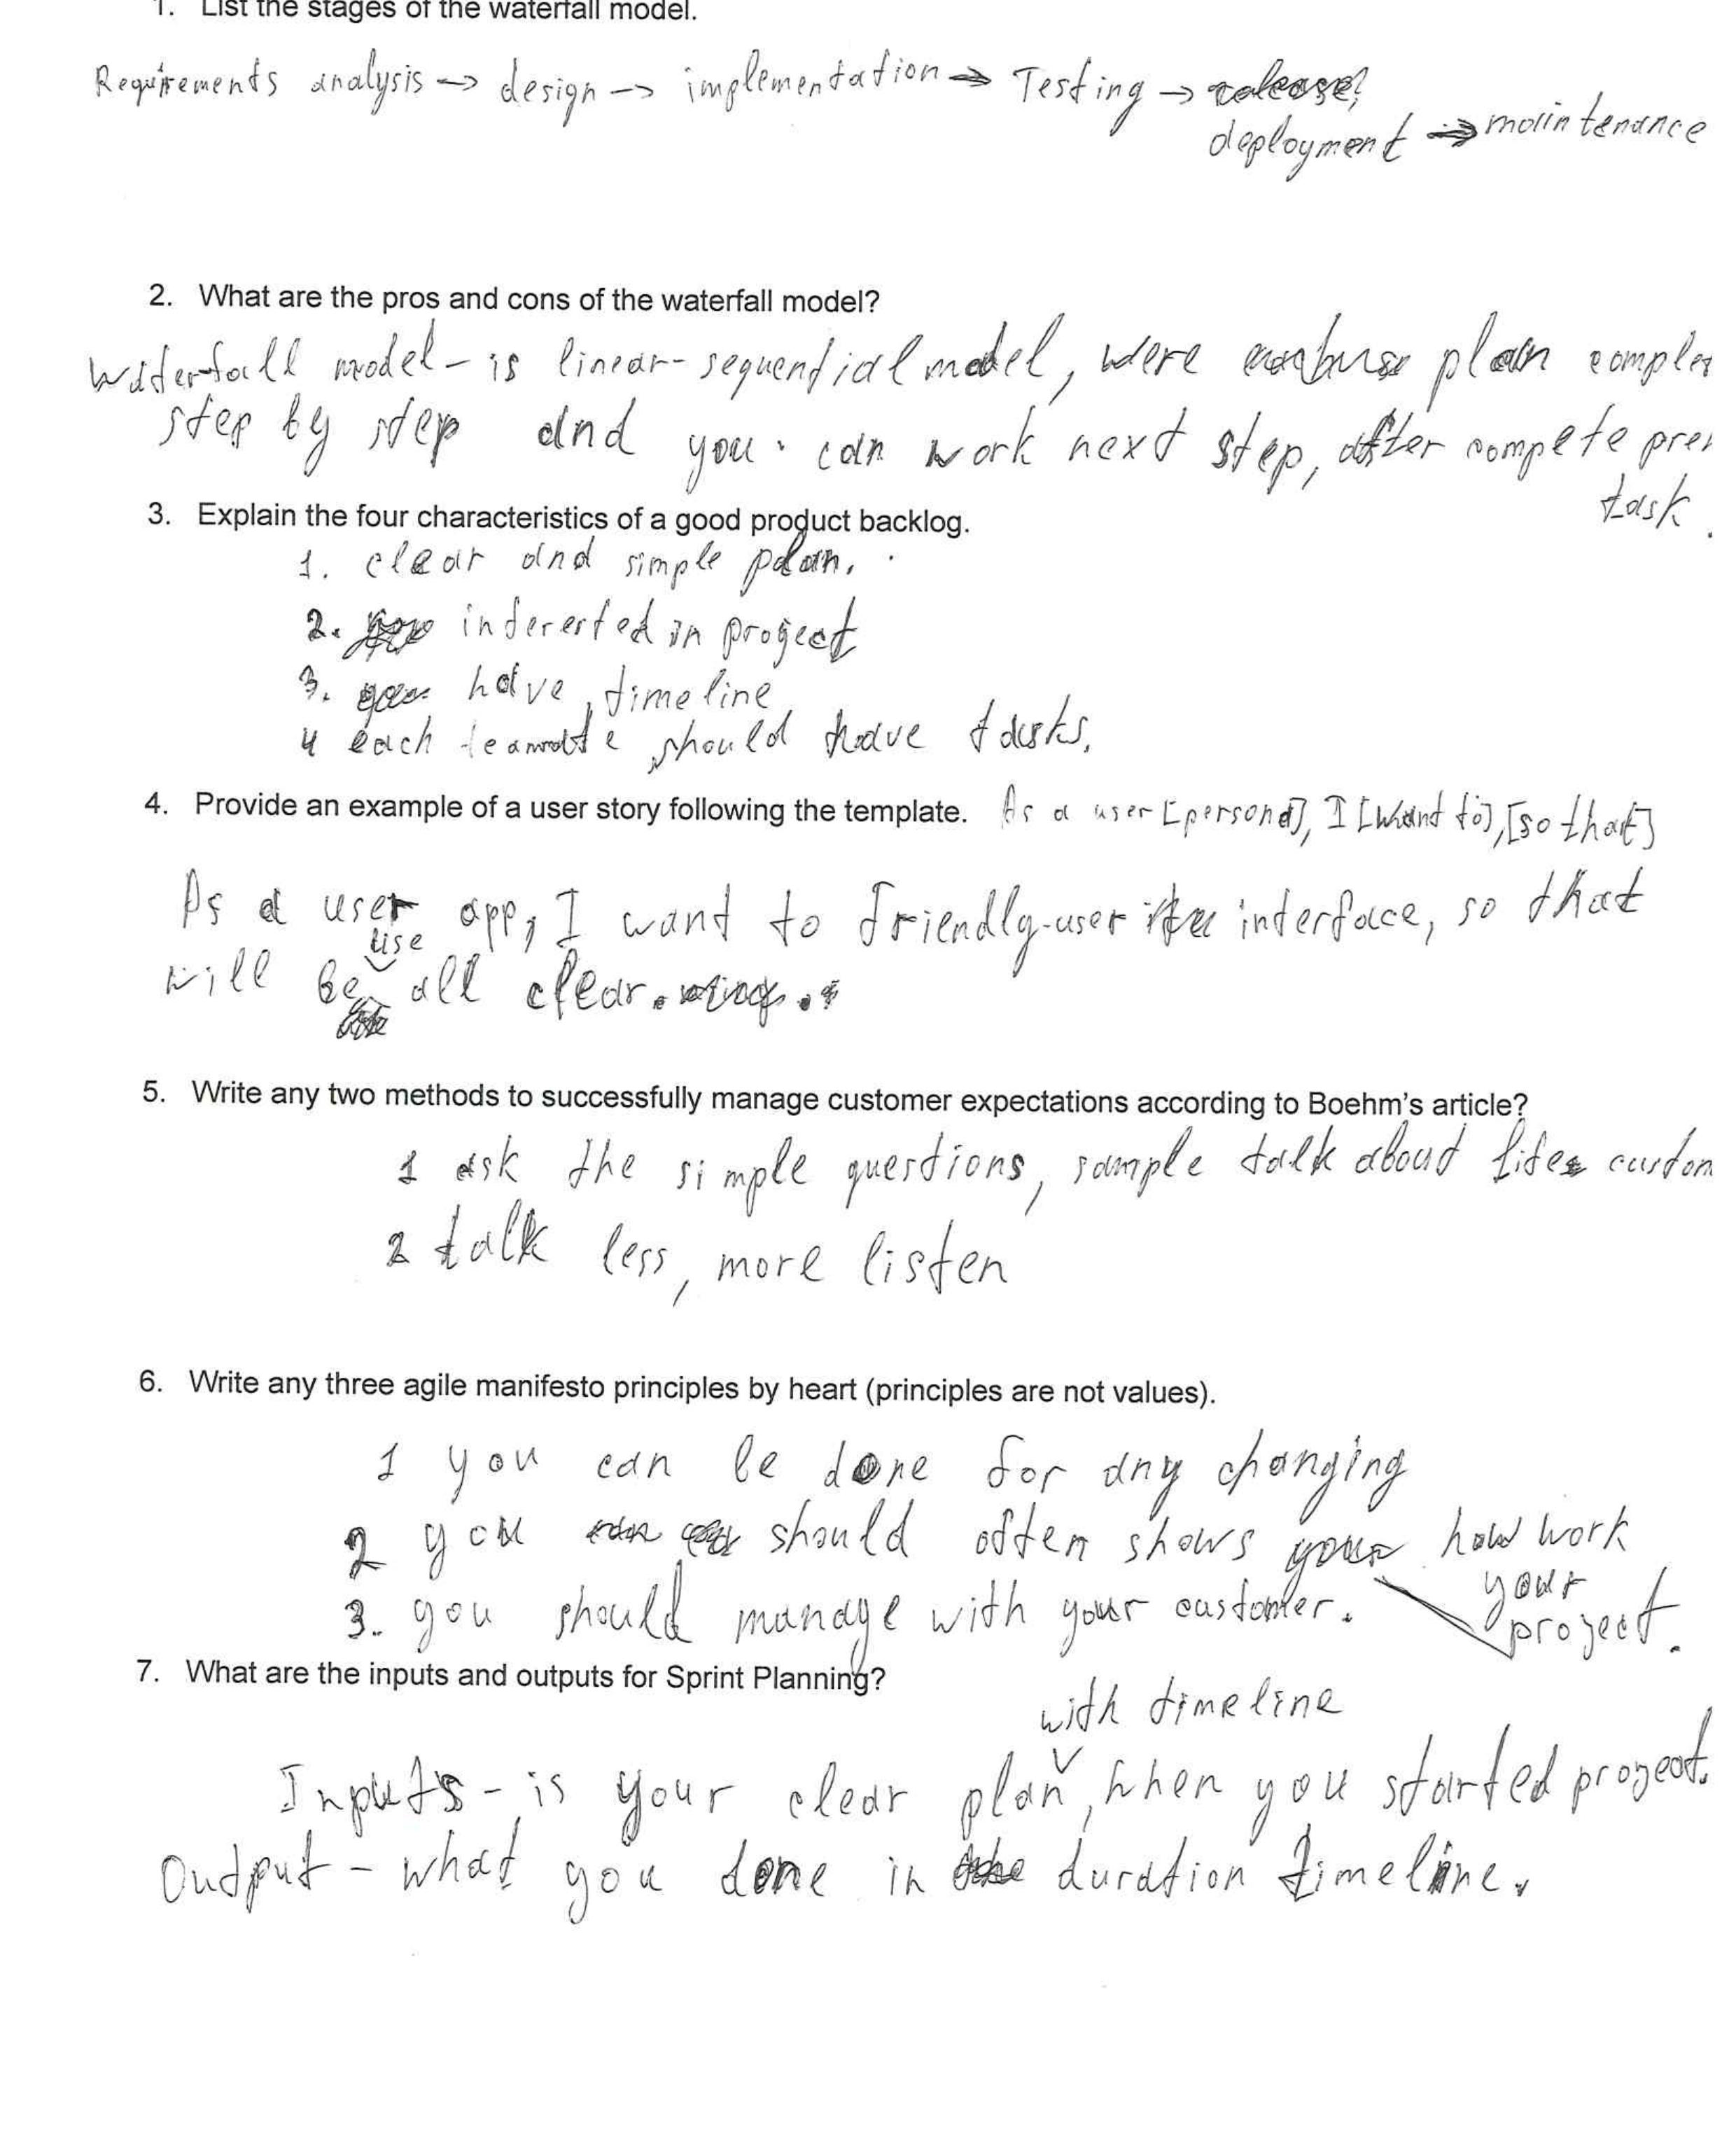 1. List the stages of the waterfall model.
Requirements analysis -> design -> implementation -> Testing ->
deployment -> maintenance
2. What are the pros and cons of the waterfall model?
Waterfall model - is linear-sequential model, were plan comple
step by step and you can work next step, after compete pre
task.
3. Explain the four characteristics of a good product backlog.
1. clear and simple plan.
2. interested in project
3. have timeline
4 each teamate should have tasks.
4. Provide an example of a user story following the template. As a user [persona], I [want to], [so that]
As a user app, I want to friendly-user interface, so that
use
will be all clear.
5. Write any two methods to successfully manage customer expectations according to Boehm's article?
1 ask the simple questions, sample talk about life custom
2 talk less, more listen
6. Write any three agile manifesto principles by heart (principles are not values).
1 you can be done for any changing
2 you should often shows how work
your
project.
3. you should manage with your customer.
7. What are the inputs and outputs for Sprint Planning?
with timeline
Inputs - is your clear plan, when you started project.
Output - what you done in duration timeline.